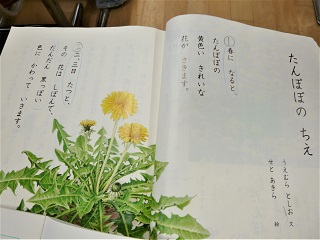 たんぽぽの ちえ
うえむら としお 文
せと あきら 絵
① 春に なると、
たんぽぽの
黄色い きれいな
花が さきます。
② 二、三日 たつと、
その 花は しぼんで、
だんだん 黒っぽい
色に かわって いきます。